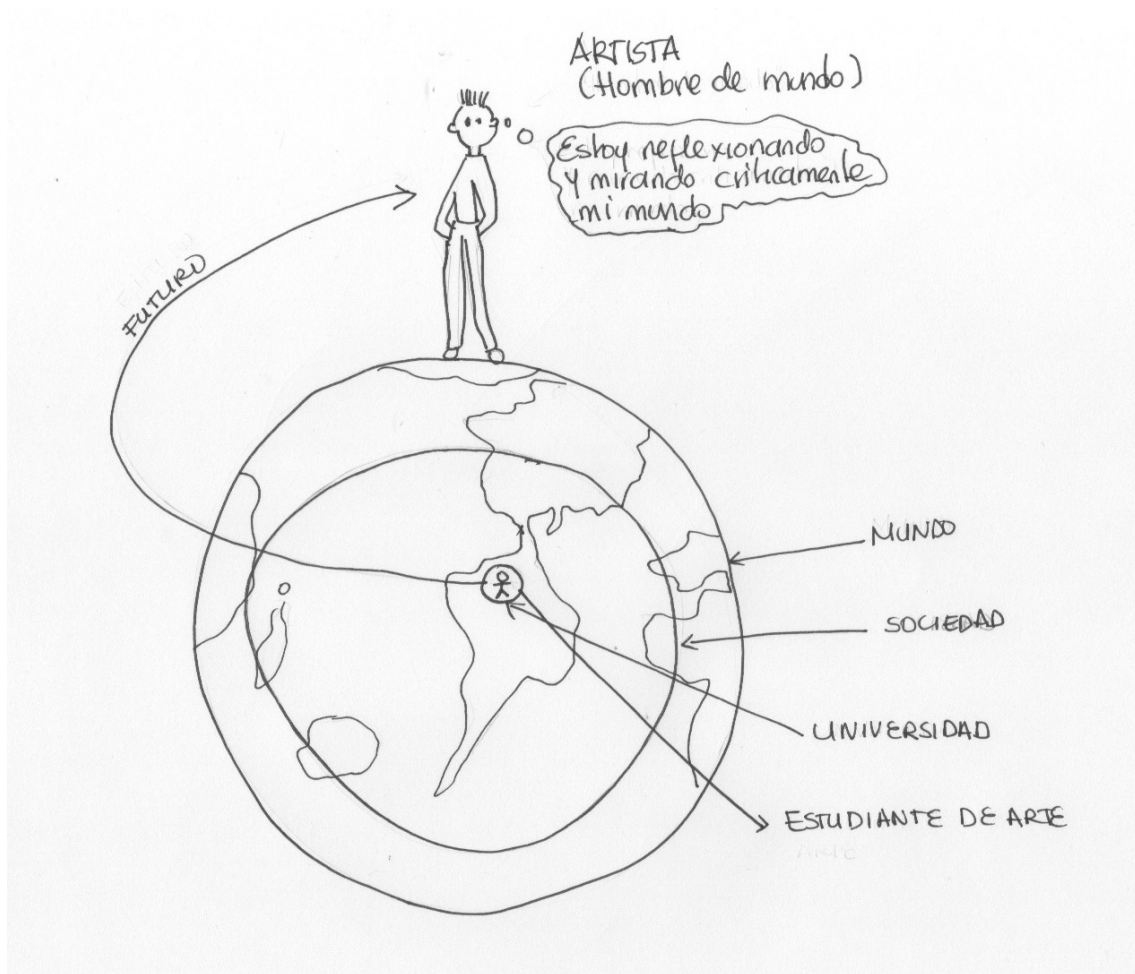 ARTISTA
(Hombre de mundo)
Estoy reflexionando
y mirando criticamente
mi mundo
FUTURO
MUNDO
SOCIEDAD
UNIVERSIDAD
ESTUDIANTE DE ARTE